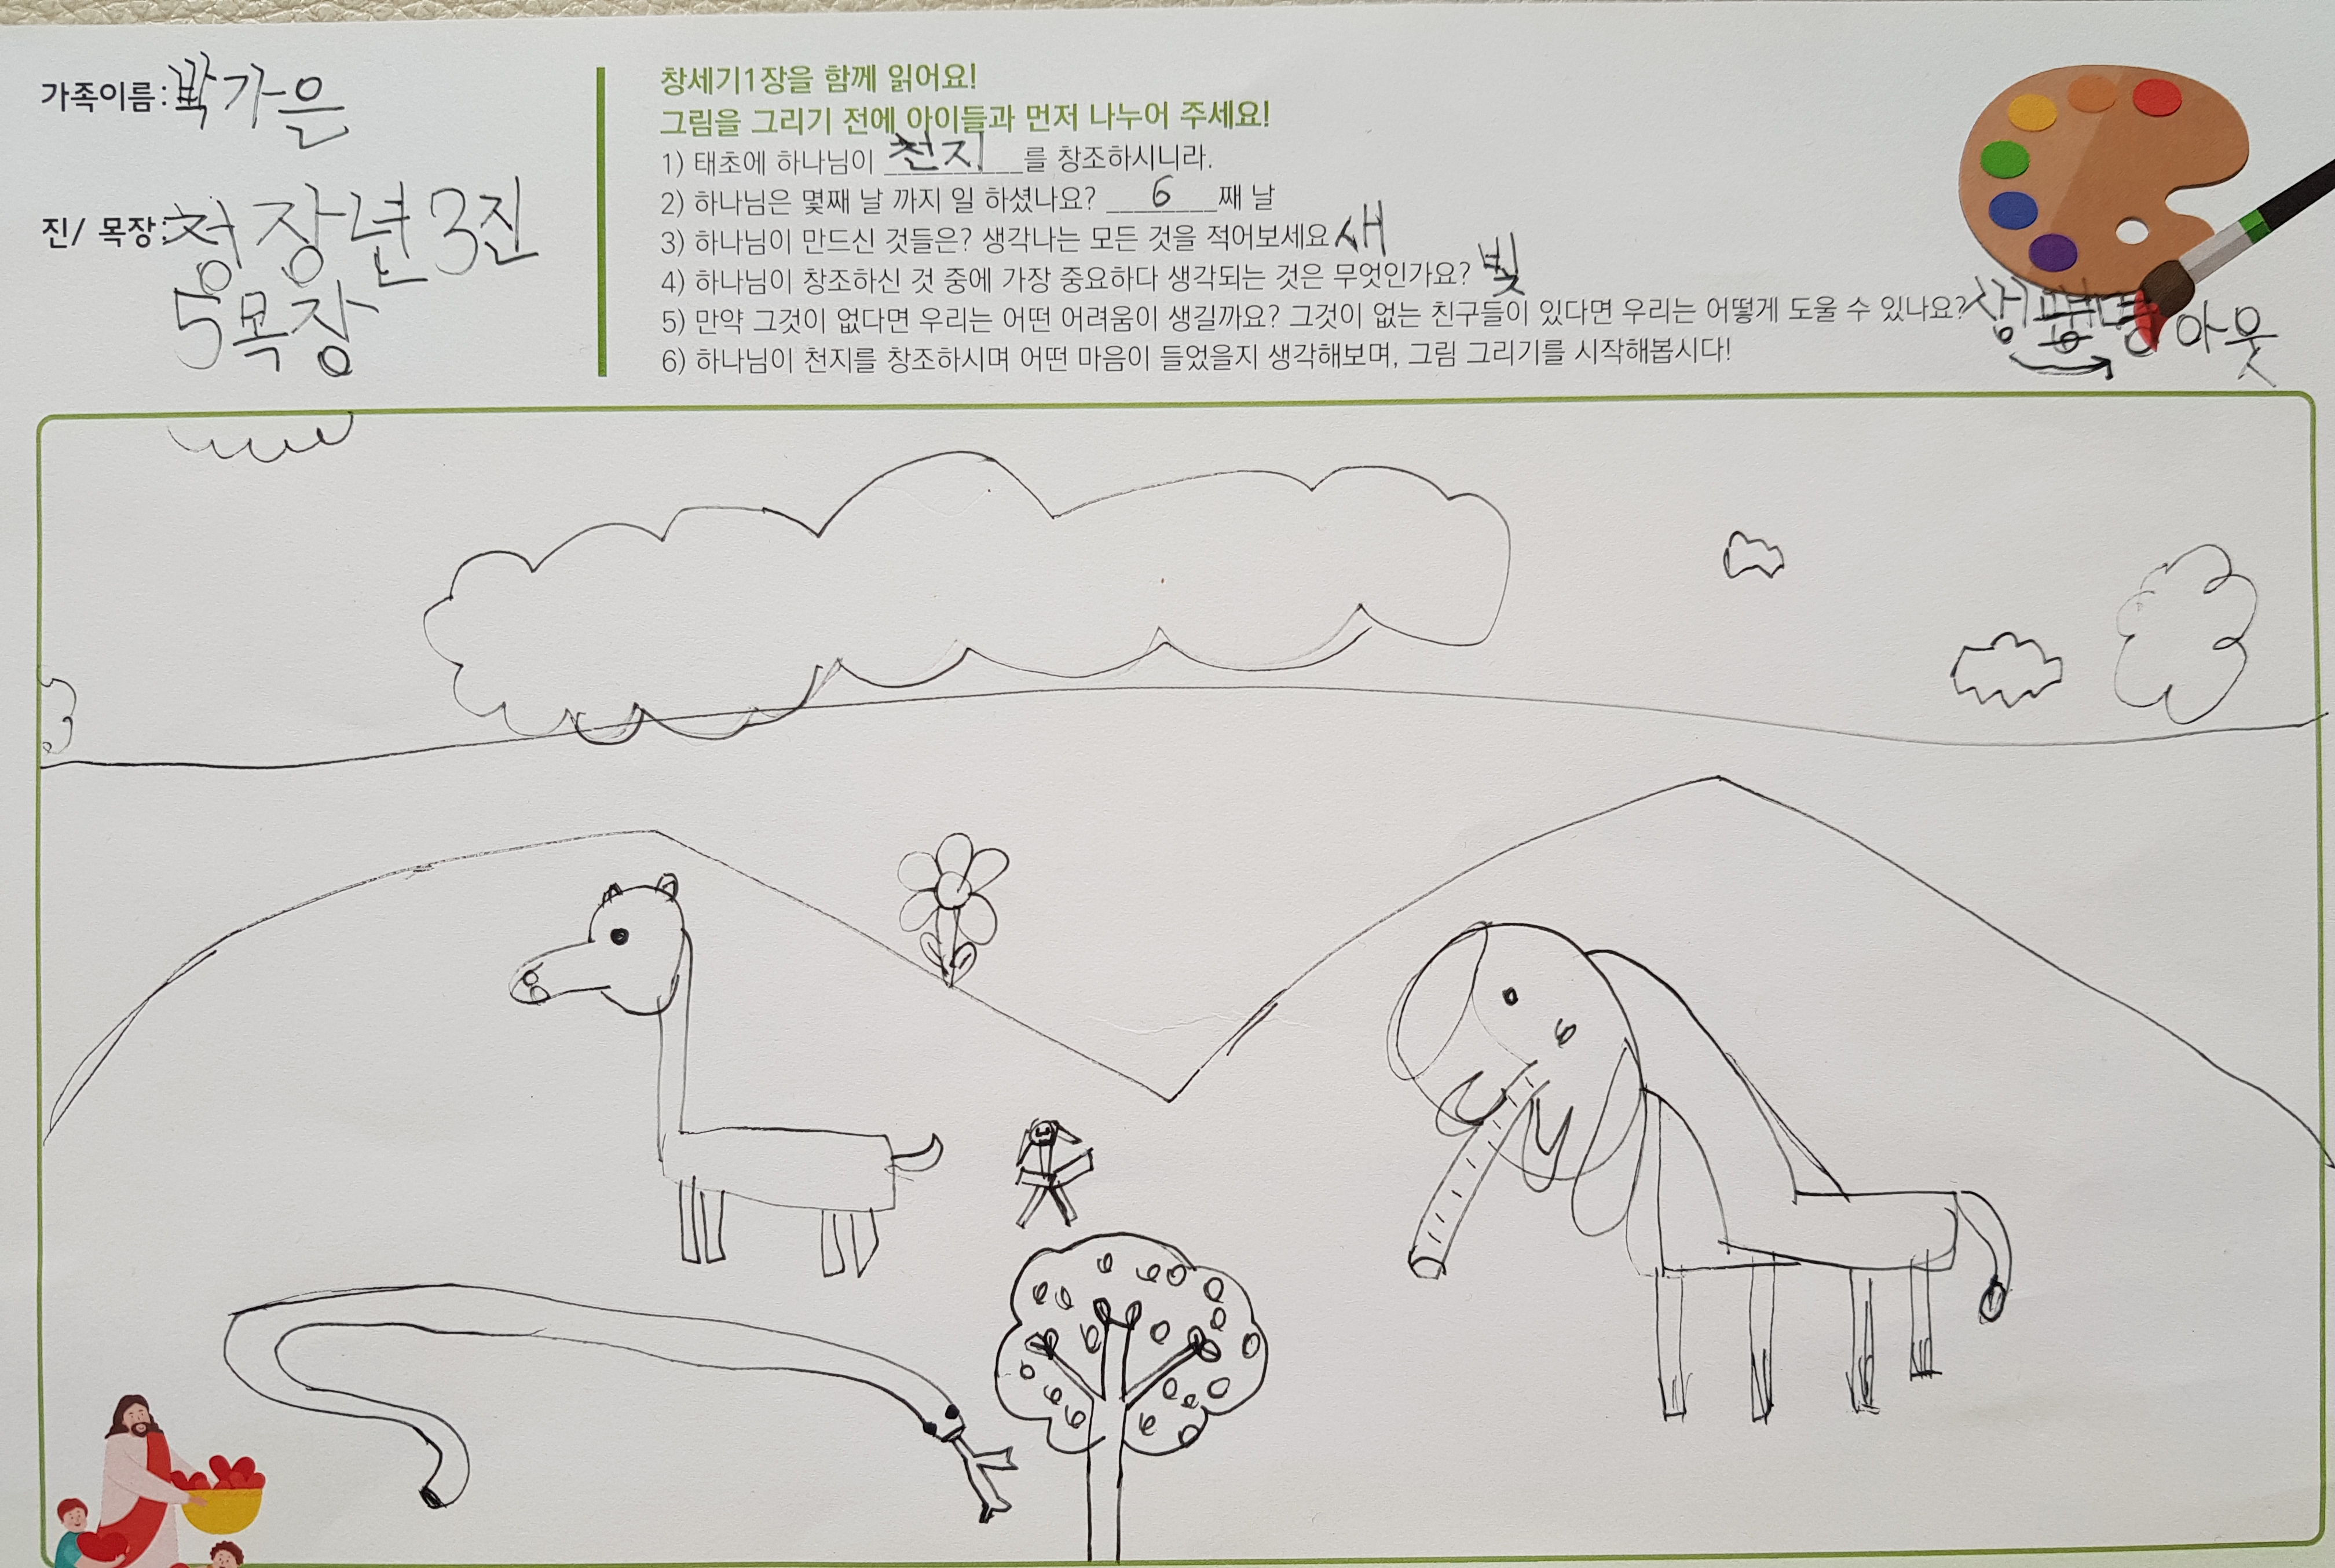 가족이름: 박가은
진/ 목장: 청장년3진
5목장
창세기1장을 함께 읽어요!
그림을 그리기 전에 아이들과 먼저 나누어 주세요!
1) 태초에 하나님이 천지를 창조하시니라.
2) 하나님은 몇째 날 까지 일 하셨나요? 6째 날
3) 하나님이 만드신 것들은? 생각나는 모든 것을 적어보세요 새
4) 하나님이 창조하신 것 중에 가장 중요하다 생각되는 것은 무엇인가요? 빛
5) 만약 그것이 없다면 우리는 어떤 어려움이 생길까요? 그것이 없는 친구들이 있다면 우리는 어떻게 도울 수 있나요?
6) 하나님이 천지를 창조하시며 어떤 마음이 들었을지 생각해보며, 그림 그리기를 시작해봅시다!